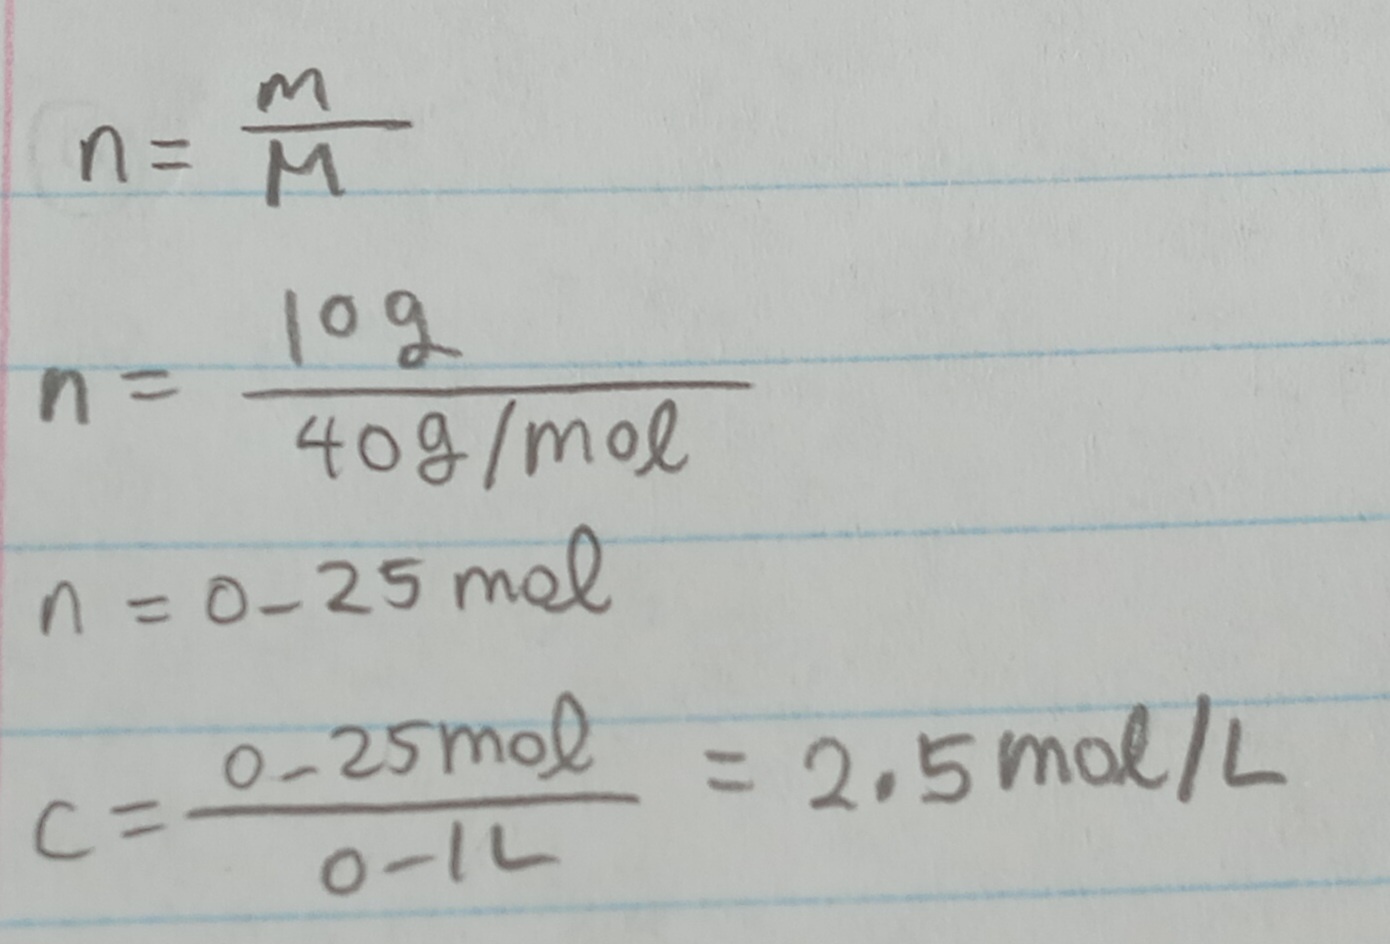 n = m/M
n = 10g / 40g/mol
n = 0-25 mol
c = 0-25mol / 0-1L = 2.5mol/L